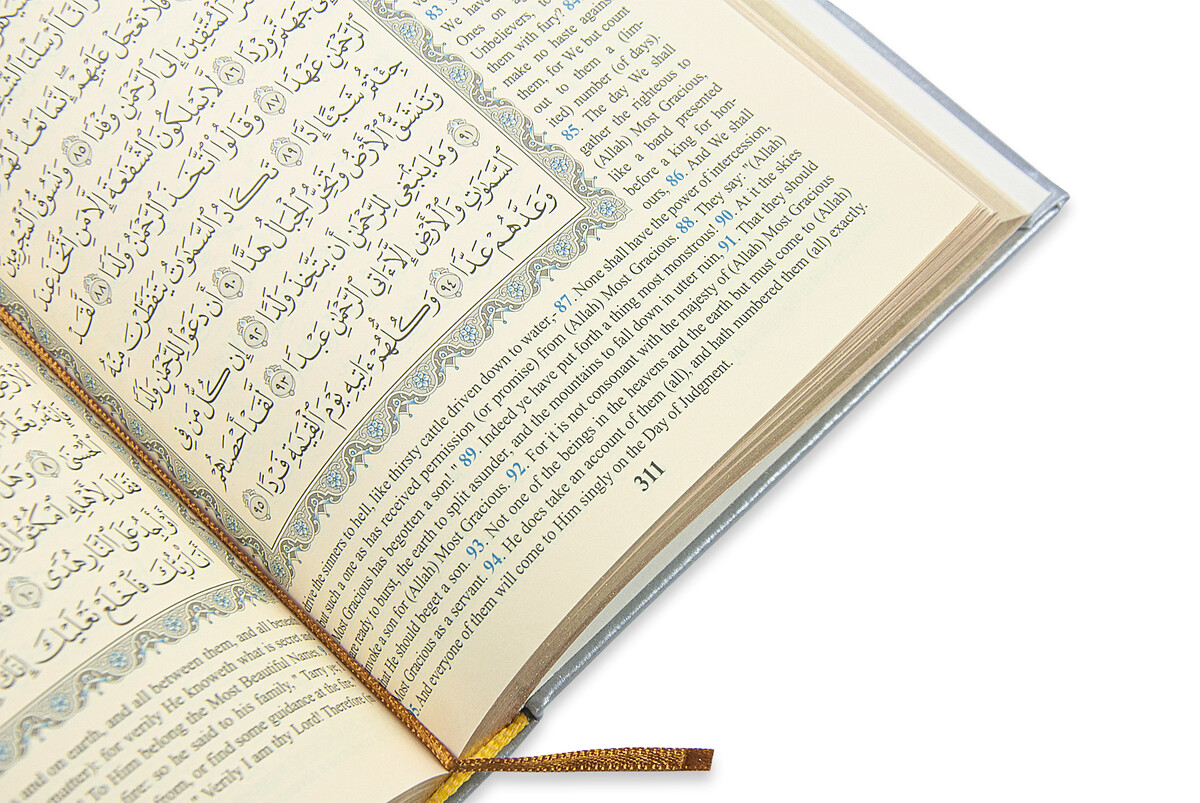 فَلَا تَعْجَلْ عَلَيْهِمْ إِنَّمَا نَعُدُّ لَهُمْ
ٱلْمُتَّقِينَ إِلَى ٱلرَّحْمَٰنِ وَفْدًا ٨٥ وَنَسُوقُ ٱلْمُجْرِمِينَ
إِلَىٰ جَهَنَّمَ وِرْدًا ٨٦ لَّا يَمْلِكُونَ ٱلشَّفَٰعَةَ إِلَّا مَنِ ٱتَّخَذَ عِندَ
ٱلرَّحْمَٰنِ عَهْدًا ٨٧ وَقَالُوا۟ ٱتَّخَذَ ٱلرَّحْمَٰنُ وَلَدًا ٨٨ لَّقَدْ
جِئْتُمْ شَيْـًٔا إِدًّا ٨٩ تَكَادُ ٱلسَّمَٰوَٰتُ يَتَفَطَّرْنَ مِنْهُ
وَتَنشَقُّ ٱلْأَرْضُ وَتَخِرُّ ٱلْجِبَالُ هَدًّا ٩٠ أَن دَعَوْا۟ لِلرَّحْمَٰنِ وَلَدًا
٩١ وَمَا يَنۢبَغِى لِلرَّحْمَٰنِ أَن يَتَّخِذَ وَلَدًا ٩٢ إِن كُلُّ مَن فِى
ٱلسَّمَٰوَٰتِ وَٱلْأَرْضِ إِلَّآ ءَاتِى ٱلرَّحْمَٰنِ عَبْدًا ٩٣ لَّقَدْ أَحْصَىٰهُمْ
وَعَدَّهُمْ عَدًّا ٩٤ وَكُلُّهُمْ ءَاتِيهِ يَوْمَ ٱلْقِيَٰمَةِ فَرْدًا ٩٥
83.
We have
Ones on
Unbelievers, to
them with fury? 84.
make no haste against
them, for We but count
out to them a (lim-
ited) number (of days).
85. The day We shall
gather the righteous to
(Allah) Most Gracious,
like a band presented
before a king for hon-
ours, 86. And We shall
drive the sinners to hell, like thirsty cattle driven down to water,- 87. None shall have the power of intercession,
but such a one as has received permission (or promise) from (Allah) Most Gracious. 88. They say: "(Allah)
Most Gracious has begotten a son!" 89. Indeed ye have put forth a thing most monstrous! 90. At it the skies
are ready to burst, the earth to split asunder, and the mountains to fall down in utter ruin, 91. That they should
invoke a son for (Allah) Most Gracious. 92. For it is not consonant with the majesty of (Allah) Most Gracious
that He should beget a son. 93. Not one of the beings in the heavens and the earth but must come to (Allah)
Most Gracious as a servant. 94. He does take an account of them (all), and hath numbered them (all) exactly.
95. And everyone of them will come to Him singly on the Day of Judgment.
311
وَهَلْ
لِأَهْلِهِ ٱمْكُثُوٓا۟ إِنِّىٓ
عَلَى ٱلنَّارِ هُدًى ١٠
رَبُّكَ فَٱخْلَعْ نَعْلَيْكَ إِنَّكَ
and on earth, and all between them, and all beneath
matter): for verily He knoweth what is secret and
To Him belong the Most Beautiful Names.
fire: so he said to his family, "Tarry ye;
from, or find some guidance at the fire."
"Verily I am thy Lord! Therefore